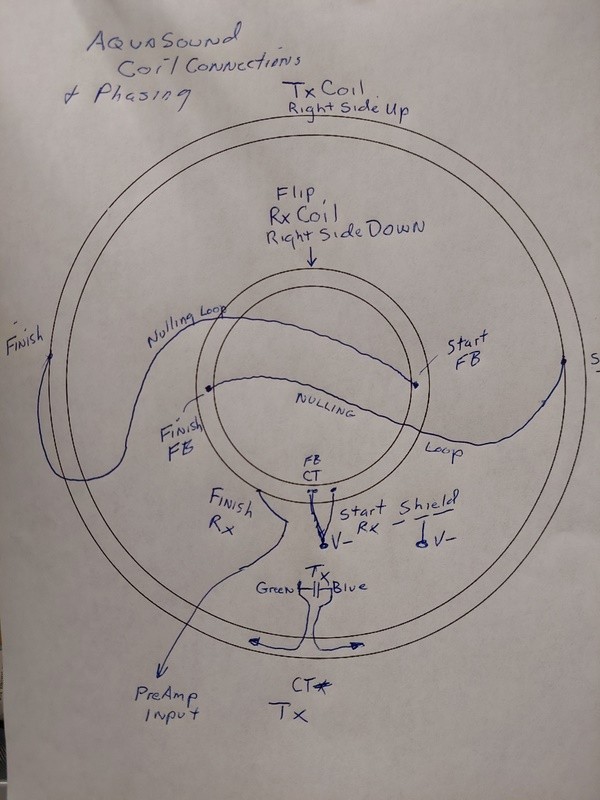 AquaSound
Coil Connections
& Phasing
Tx Coil
Right Side Up
Flip
Rx Coil
Right Side DOWN
Finish
Nulling Loop
Start
FB
S
Finish
FB
NULLING
Loop
FB
CT
Finish
Rx
Start
Rx
Shield
V-
V-
Tx
Green
Blue
CT*
Tx
PreAmp
Input